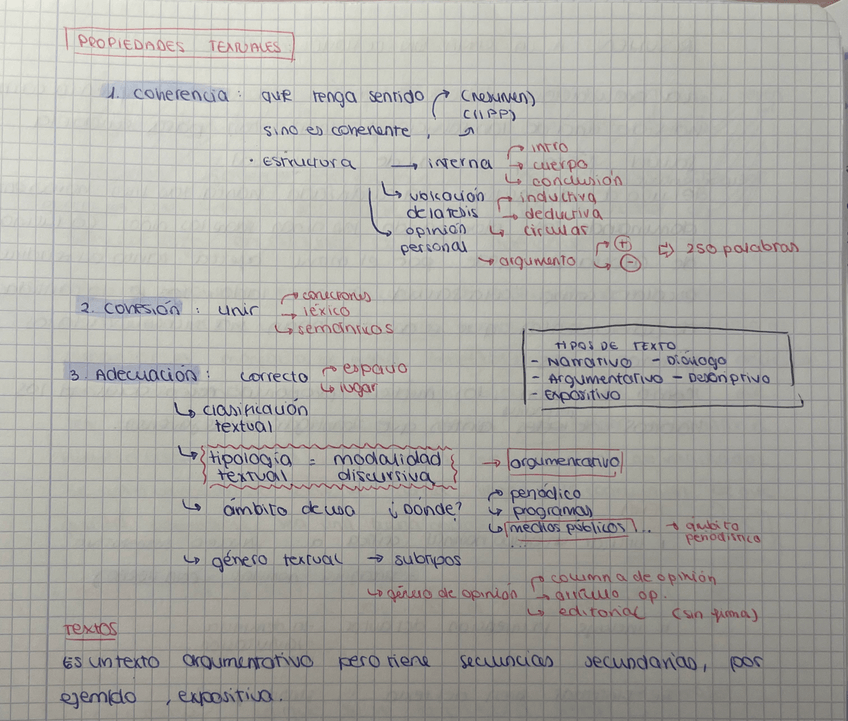 PROPIEDADES TEXTUALES
1. Coherencia: que tenga sentido → (resumen)
(IIPP)
sino es coherente, →
· Estructura → interna → intro
→ cuerpo
↳ conclusión
↳ ubicación → inductiva
de la tesis → deductiva
↳ opinión ↳ circular
personal
→ argumento → + ⇒ 250 palabras
↳ -
2. Cohesión: unir → conexiones
→ léxico
↳ semánticos
TIPOS DE TEXTO
- Narrativo - Diálogo
- Argumentativo - Descriptivo
- Expositivo
3. Adecuación: correcto → espacio
↳ lugar
↳ clasificación
textual
↳ tipología = modalidad → argumentativo
textual discursiva
↳ ámbito de uso ¿Dónde? → periódico
↳ programas
↳ medios públicos... → ámbito
periodístico
...
↳ género textual → subtipos
↳ género de opinión → columna de opinión
→ artículo op.
↳ editorial (sin firma)
Textos
Es un texto argumentativo pero tiene secuencias secundarias, por
ejemplo, expositiva.